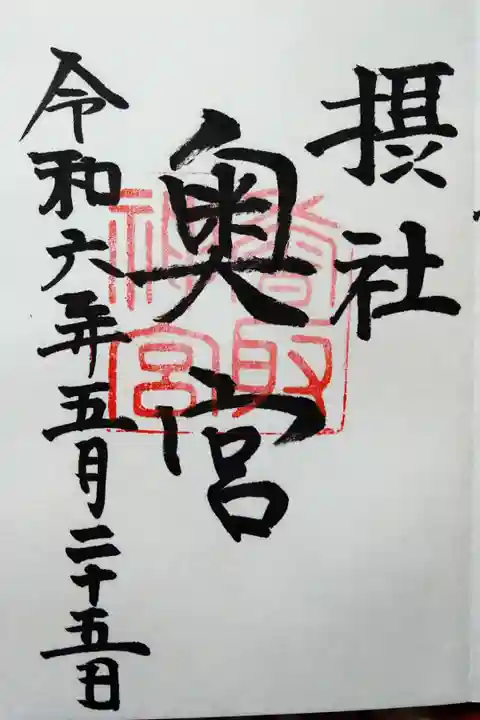 摂社
奥宮
香取
神宮
令和六年五月二十五日